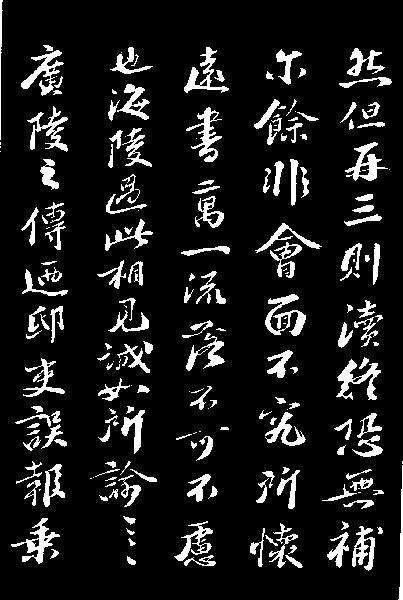 然但再三則瀆終恐無補
尓餘非會面不究所懷
遠書萬一流落不可不慮
也海陵過此相見誠如所諭〻〻
廣陵之傳迺邸吏誤報乗